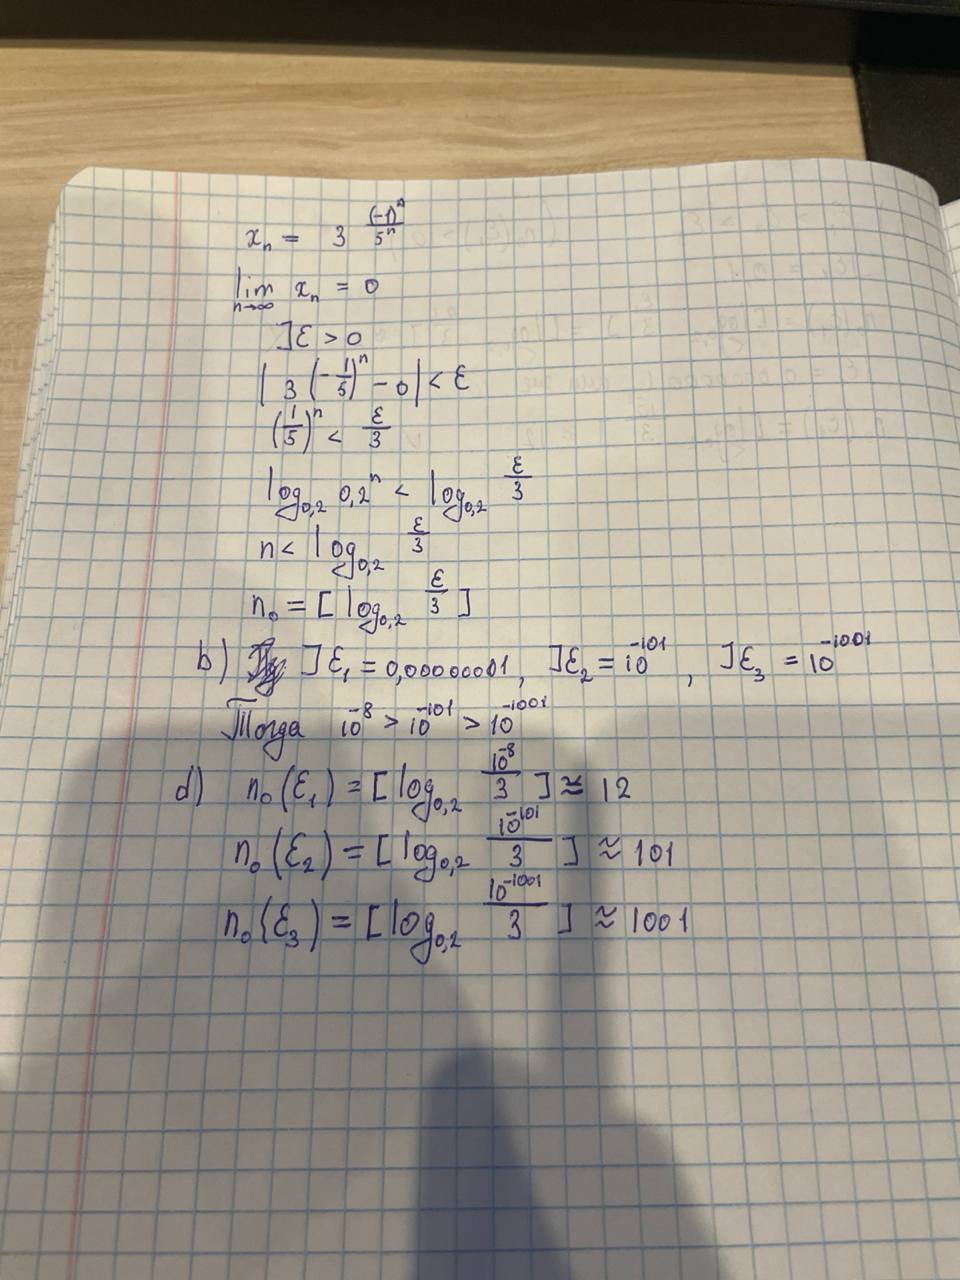 xₙ = 3 (-1)ⁿ/5ⁿ
lim n→∞ xₙ = 0
] ε > 0
| 3 (-1/5)ⁿ - 0 | < ε
(1/5)ⁿ < ε/3
log₀,₂ 0,2ⁿ < log₀,₂ ε/3
n < log₀,₂ ε/3
n₀ = [ log₀,₂ ε/3 ]
b) ] ε₁ = 0,00000001, ] ε₂ = 10⁻¹⁰¹, ] ε₃ = 10⁻¹⁰⁰¹
Тогда 10⁻⁸ > 10⁻¹⁰¹ > 10⁻¹⁰⁰¹
d) n₀(ε₁) = [ log₀,₂ 10⁻⁸/3 ] ≈ 12
n₀(ε₂) = [ log₀,₂ 10⁻¹⁰¹/3 ] ≈ 101
n₀(ε₃) = [ log₀,₂ 10⁻¹⁰⁰¹/3 ] ≈ 1001